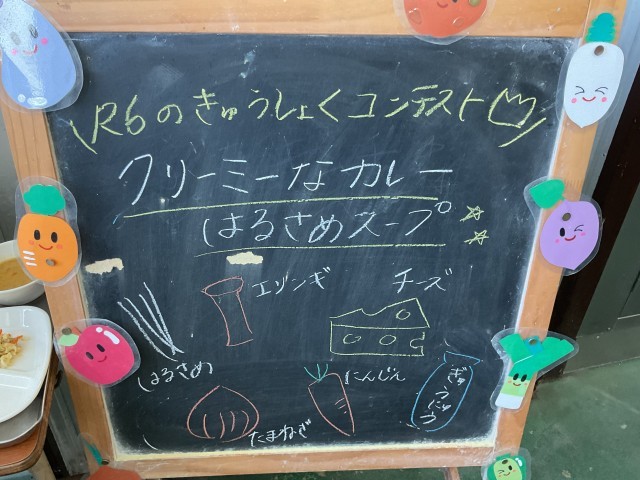 R6のきゅうしょくコンテスト
クリーミーなカレー
はるさめスープ
エリンギ
チーズ
はるさめ
にんじん
ぎゅうにゅう
たまねぎ